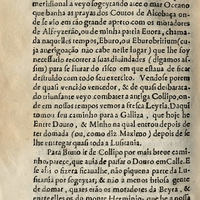 meridional a veyo sogeyrando atee o mar Oceano
que banha as prayas dos Coutos de Alcobaça on-
de se afio em tão grande aperto com os moradores
de Alfeyzerão, ou de minha patria Euora, chama-
da naquelles tempos, Eburo, ou Euorobritium (cu-
ja auerigoação não cabe neste lugar) que lhe foy
necessario recorrer a suas diuindades (digamos as-
sim) para se liurar do risco em que estaua de ficar
destruido com todo seu exercito. Vendose porem
de quasi vencido vencedor, & de quasi desbarata-
do triumfante se veyo caminho a antiga Collipo, on-
de em nossos tempos vemos a fresca Leyria. Daqui
tomou seu caminho para a Galliza, que hoje he
Entre Douro, & Minho na qual entrou depois de
ter domada (ou, como diz Maximo) depois de se
lhe entregar quasi toda a Lusitania.
Para Bruto ir de Collippo por mais breue cami-
nho parece, que auia de passar o Douro em Calle. E
se assi o fizera ficaualhe, não piquena parte da Lu-
sitania por sogeytar, & quando menos a gente mais
de domar, quaes erão os moradores da Beyra, &
entre elles os do monte Herminio, que he a nossa